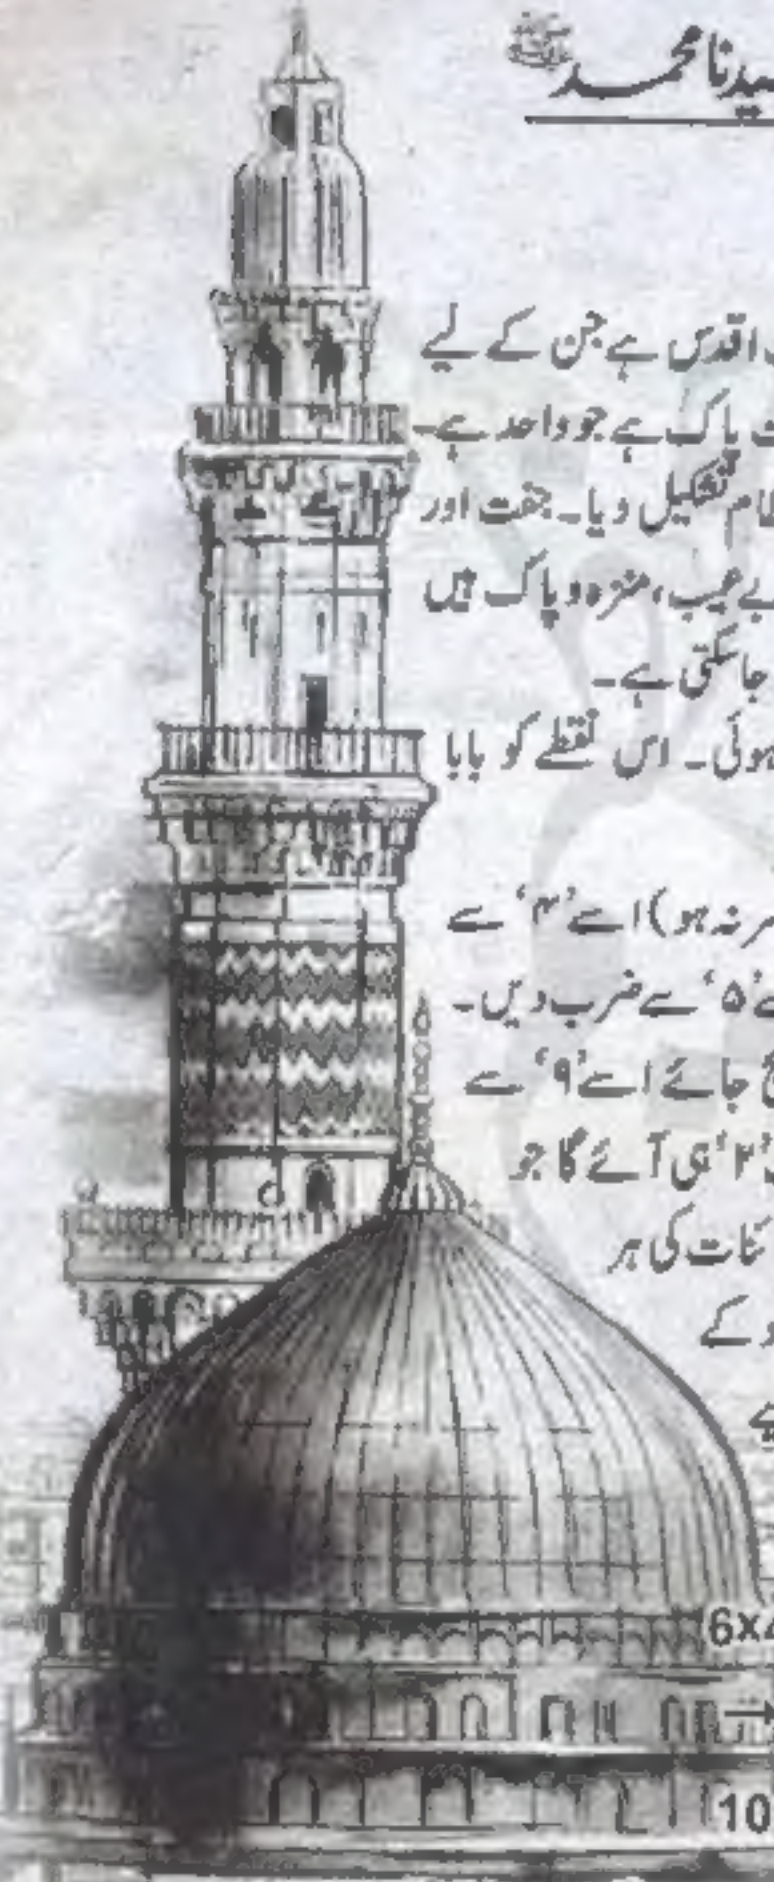 سیدنا محمد ﷺ
اقدس ہے جن کے لیے
پاک ہے جو واحد ہے۔
تشکیل دیا۔ جفت اور
بے عیب، منزہ و پاک ہیں
جاسکتی ہے۔
ہوئی۔ اس نقطے کو بابا
نہ ہو) اسے ’۴‘ سے
’۵‘ سے ضرب دیں۔
جائے اسے ’۹‘ سے
’۲‘ ہی آئے گا جو
کی ہر
کے
6x4
→
10